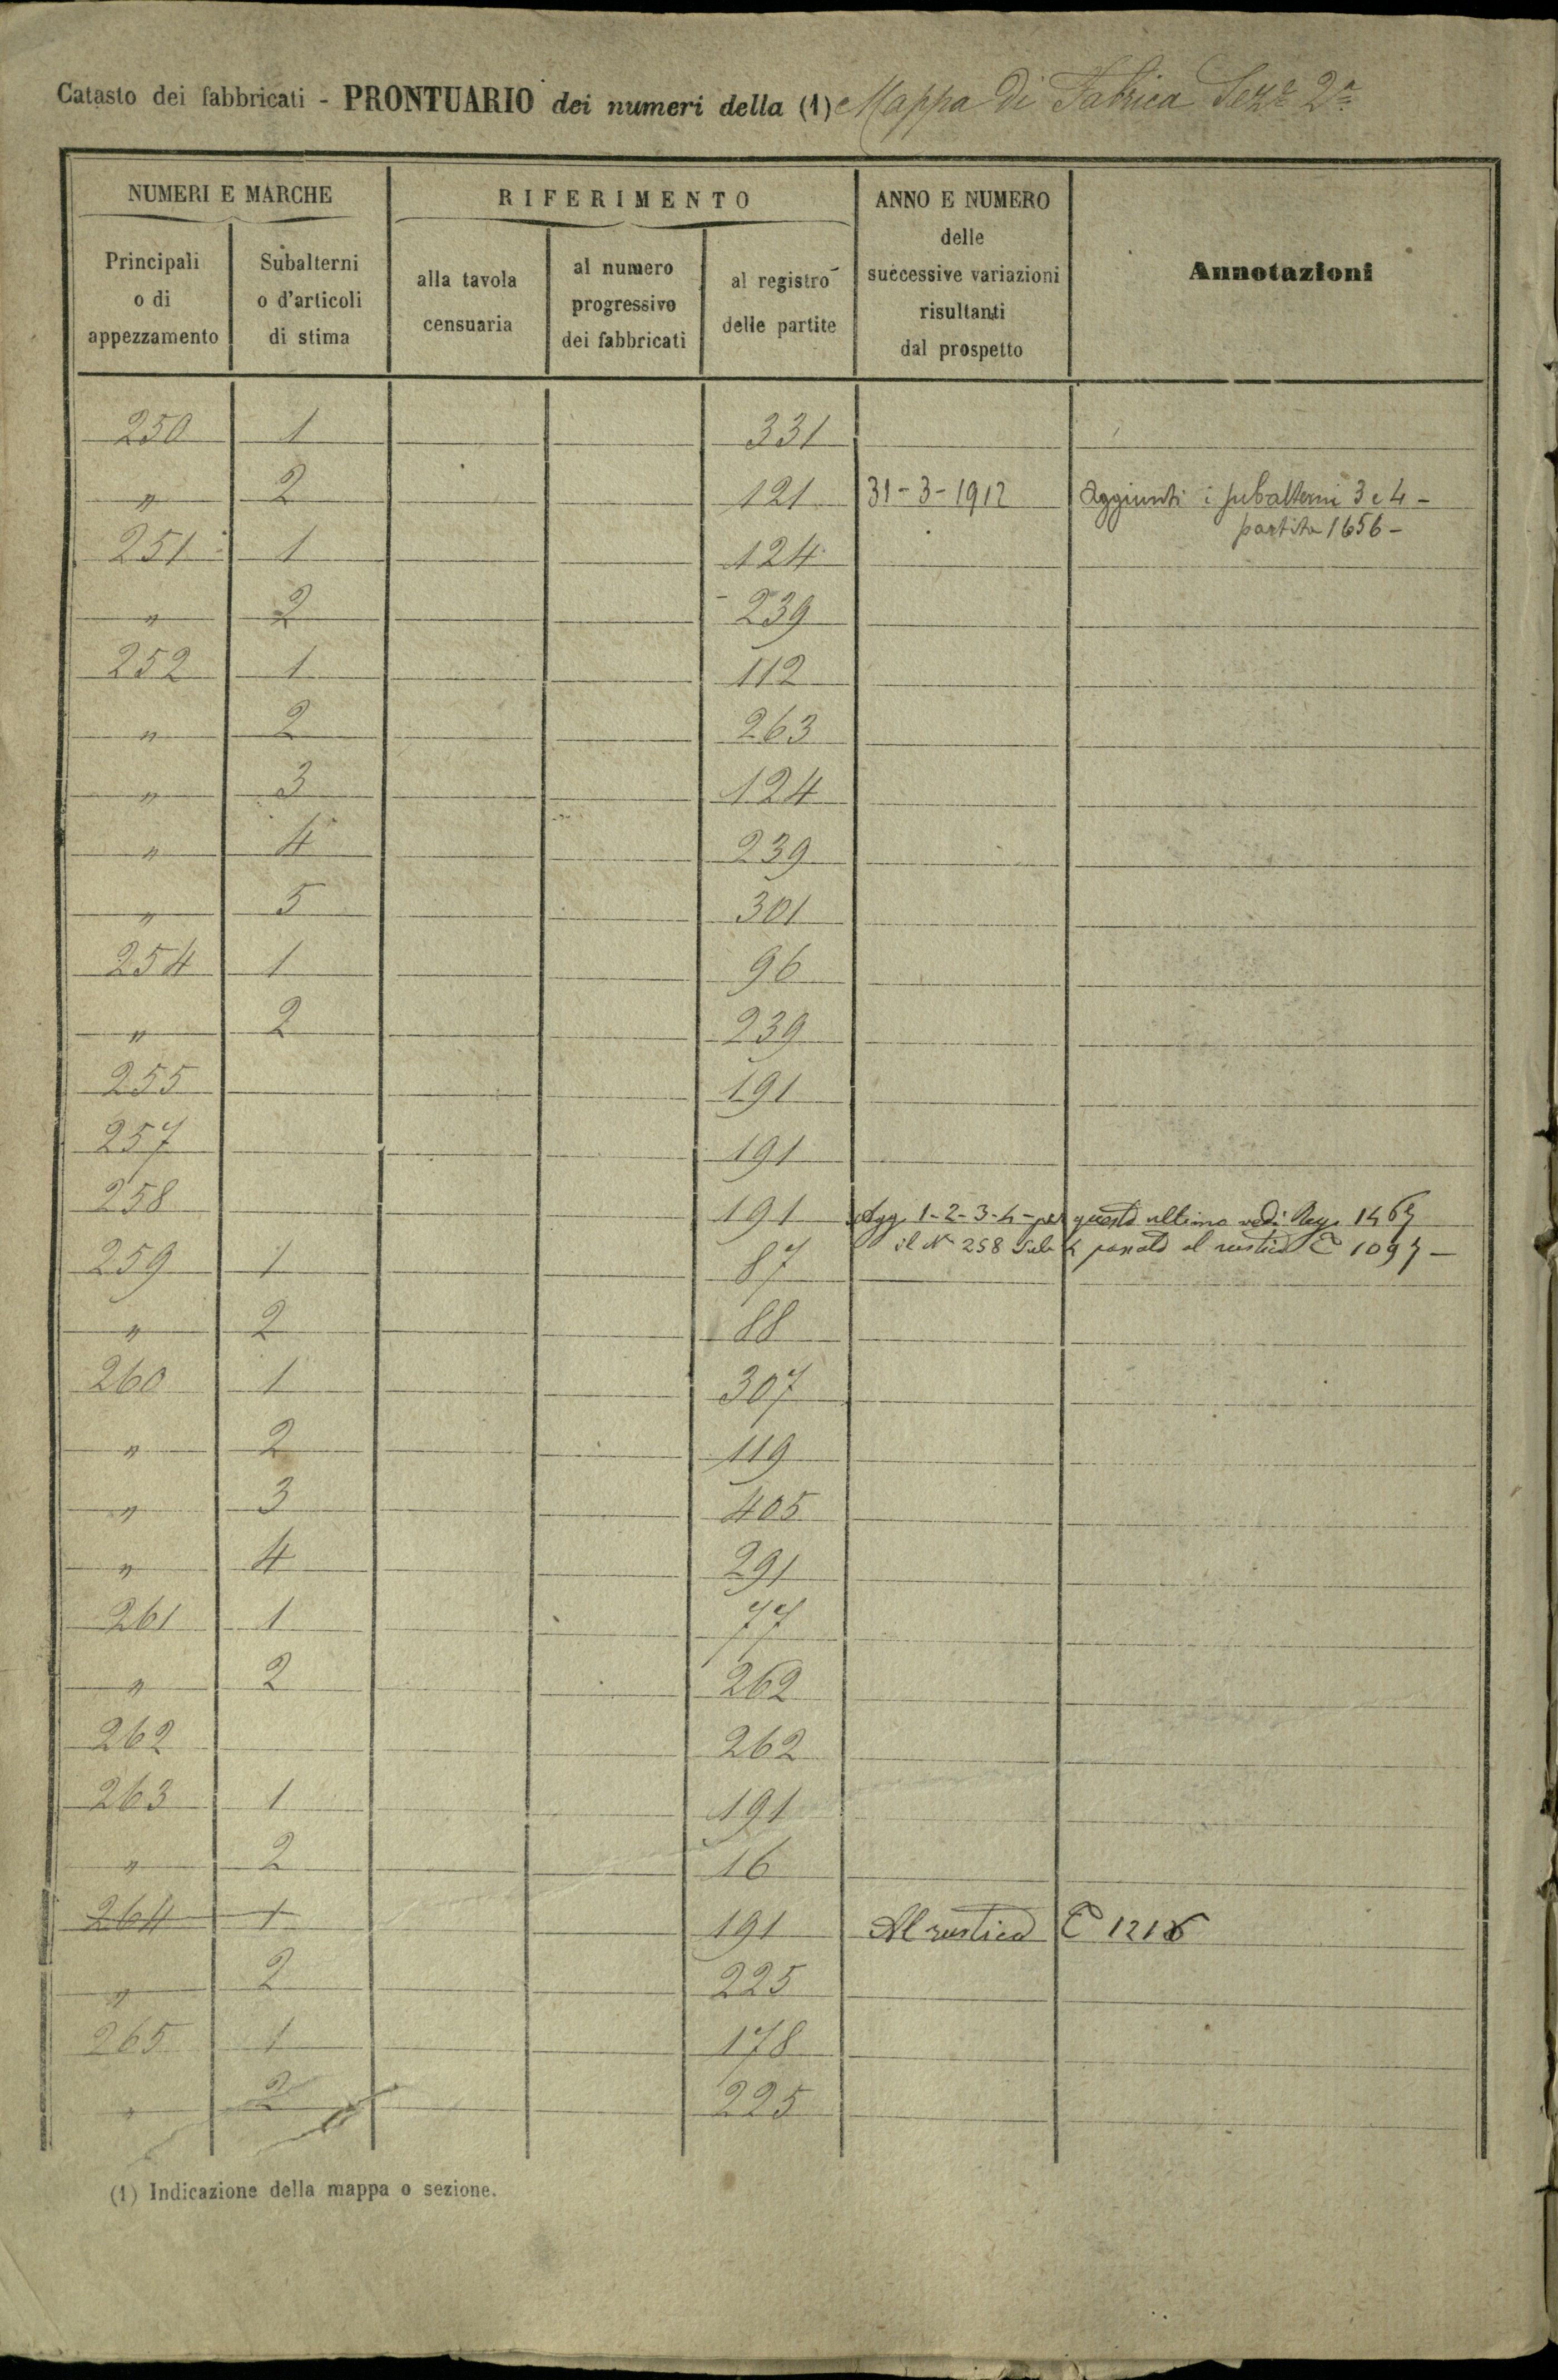 Catasto dei fabbricati - PRONTUARIO dei numeri della (1) Mappa di Fabrica Sez.e 2a
NUMERI E MARCHE
RIFERIMENTO
ANNO E NUMERO
delle
successive variazioni
risultanti
dal prospetto
Annotazioni
Principali
o di
appezzamento
Subalterni
o d'articoli
di stima
alla tavola
censuaria
al numero
progressivo
dei fabbricati
al registro
delle partite
250 1 331
" 2 121 31-3-1912 Aggiunti i subalterni 3 e 4 -
partita 1656 -
251 1 124
" 2 239
252 1 112
" 2 263
" 3 124
" 4 239
" 5 301
254 1 96
" 2 239
255 191
257 191
258 191 Agg. 1-2-3-4- per questo ultimo vedi Reg.
il N 258 Sub 4 passato al rustico
259 1 87
" 2 88
260 1 307
" 2 119
" 3 405
" 4 291
261 1 77
" 2 262
262 262
263 1 191
" 2 16
264 1 191 Al rustico
" 2 225
265 1 178
" 2 225
(1) Indicazione della mappa o sezione.